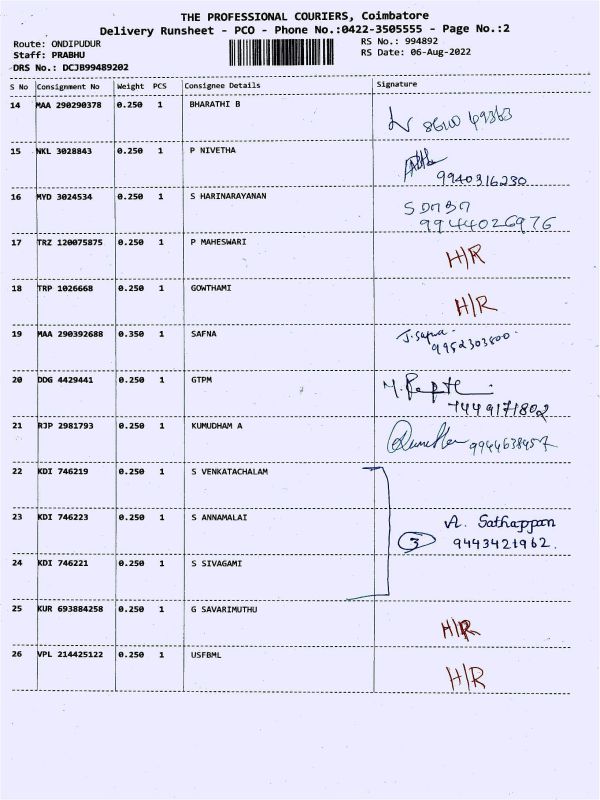 THE PROFESSIONAL COURIERS, Coimbatore
Delivery Runsheet - PCO - Phone No.:0422-3505555 - Page No.:2
Route: ONDIPUDUR RS No.: 994892
Staff: PRABHU RS Date: 06-Aug-2022
DRS No.: DCJB99489202
S No Consignment No Weight PCS Consignee Details Signature
14 MAA 290290378 0.250 1 BHARATHI B
15 NKL 3028843 0.250 1 P NIVETHA
9940316230
16 MYD 3024534 0.250 1 S HARINARAYANAN
9944026976
17 TRZ 120075875 0.250 1 P MAHESWARI H/R
18 TRP 1026668 0.250 1 GOWTHAMI H/R
19 MAA 290392688 0.350 1 SAFNA J. Safna.
9952303800
20 DDG 4429441 0.250 1 GTPM
7449171802
21 RJP 2981793 0.250 1 KUMUDHAM A 9944638457
22 KDI 746219 0.250 1 S VENKATACHALAM
23 KDI 746223 0.250 1 S ANNAMALAI A. Sathappan
3 9443421962.
24 KDI 746221 0.250 1 S SIVAGAMI
25 KUR 693884258 0.250 1 G SAVARIMUTHU H/R
26 VPL 214425122 0.250 1 USFBML H/R